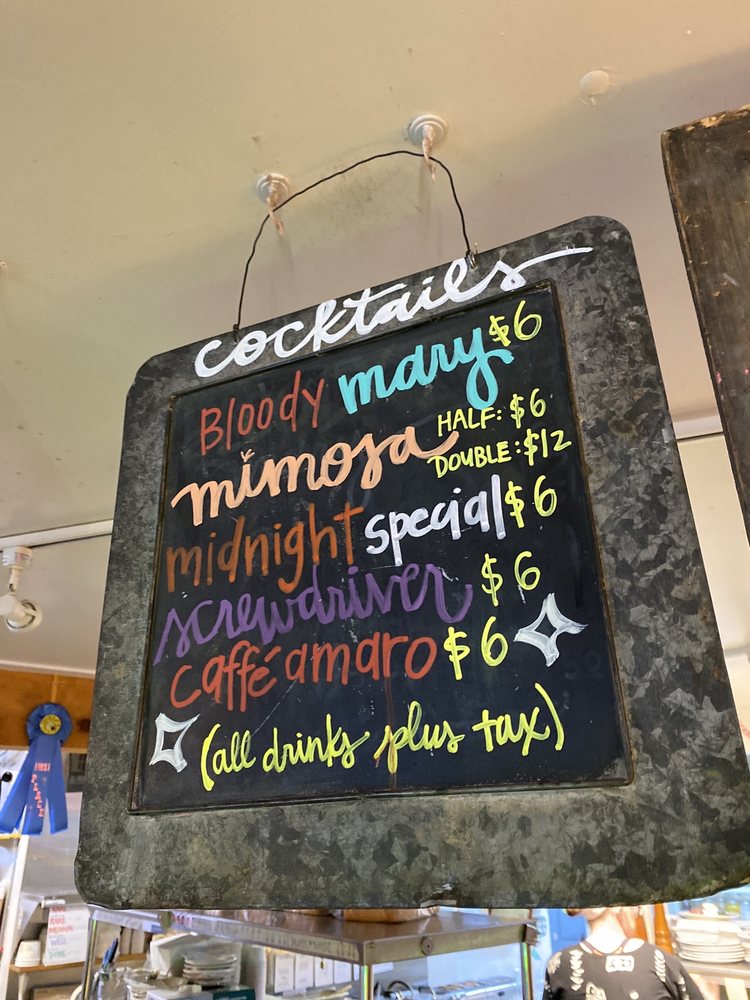 cocktails
Bloody mary $6
mimosa HALF: $6
DOUBLE: $12
midnight special $6
screwdriver $6
caffé amaro $6
(all drinks plus tax)
FIRST
WELL
DONE